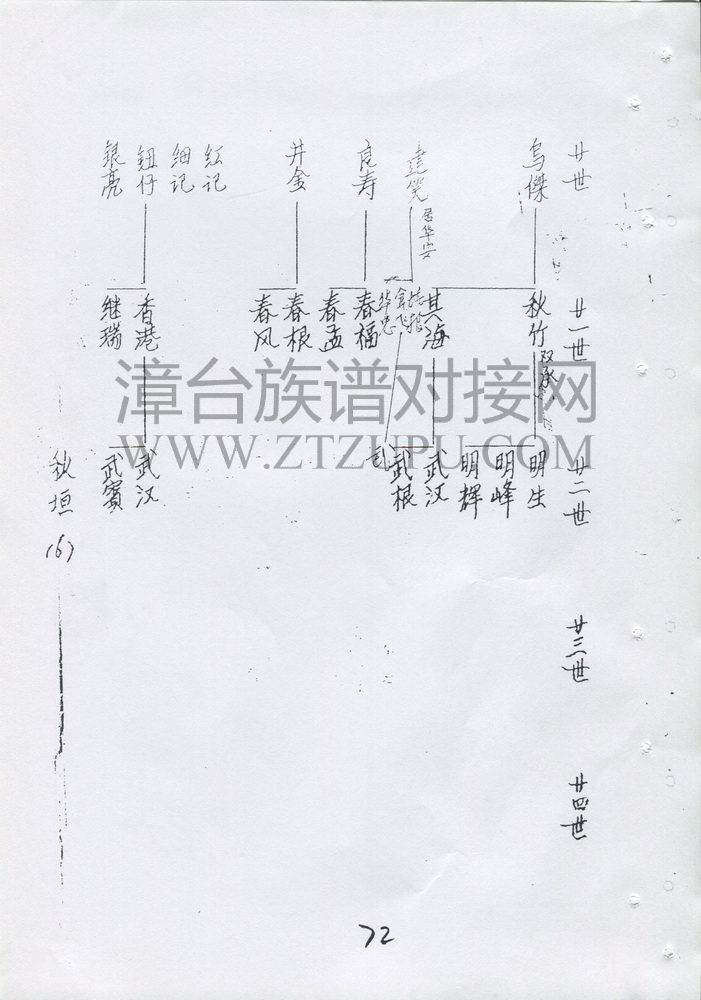 廿世
烏傑
達笑
居华安
良寿
井金
红记
细记
钮仔
银亮
廿一世
秋竹
双承
其海
华忠
春福
春孟
春根
春风
香港
继瑞
廿二世
明生
明峰
明辉
武汉
武根
武汉
武賓
廿三世
廿四世
秋垣(6)
漳台族谱对接网
WWW.ZTZUPU.COM
72